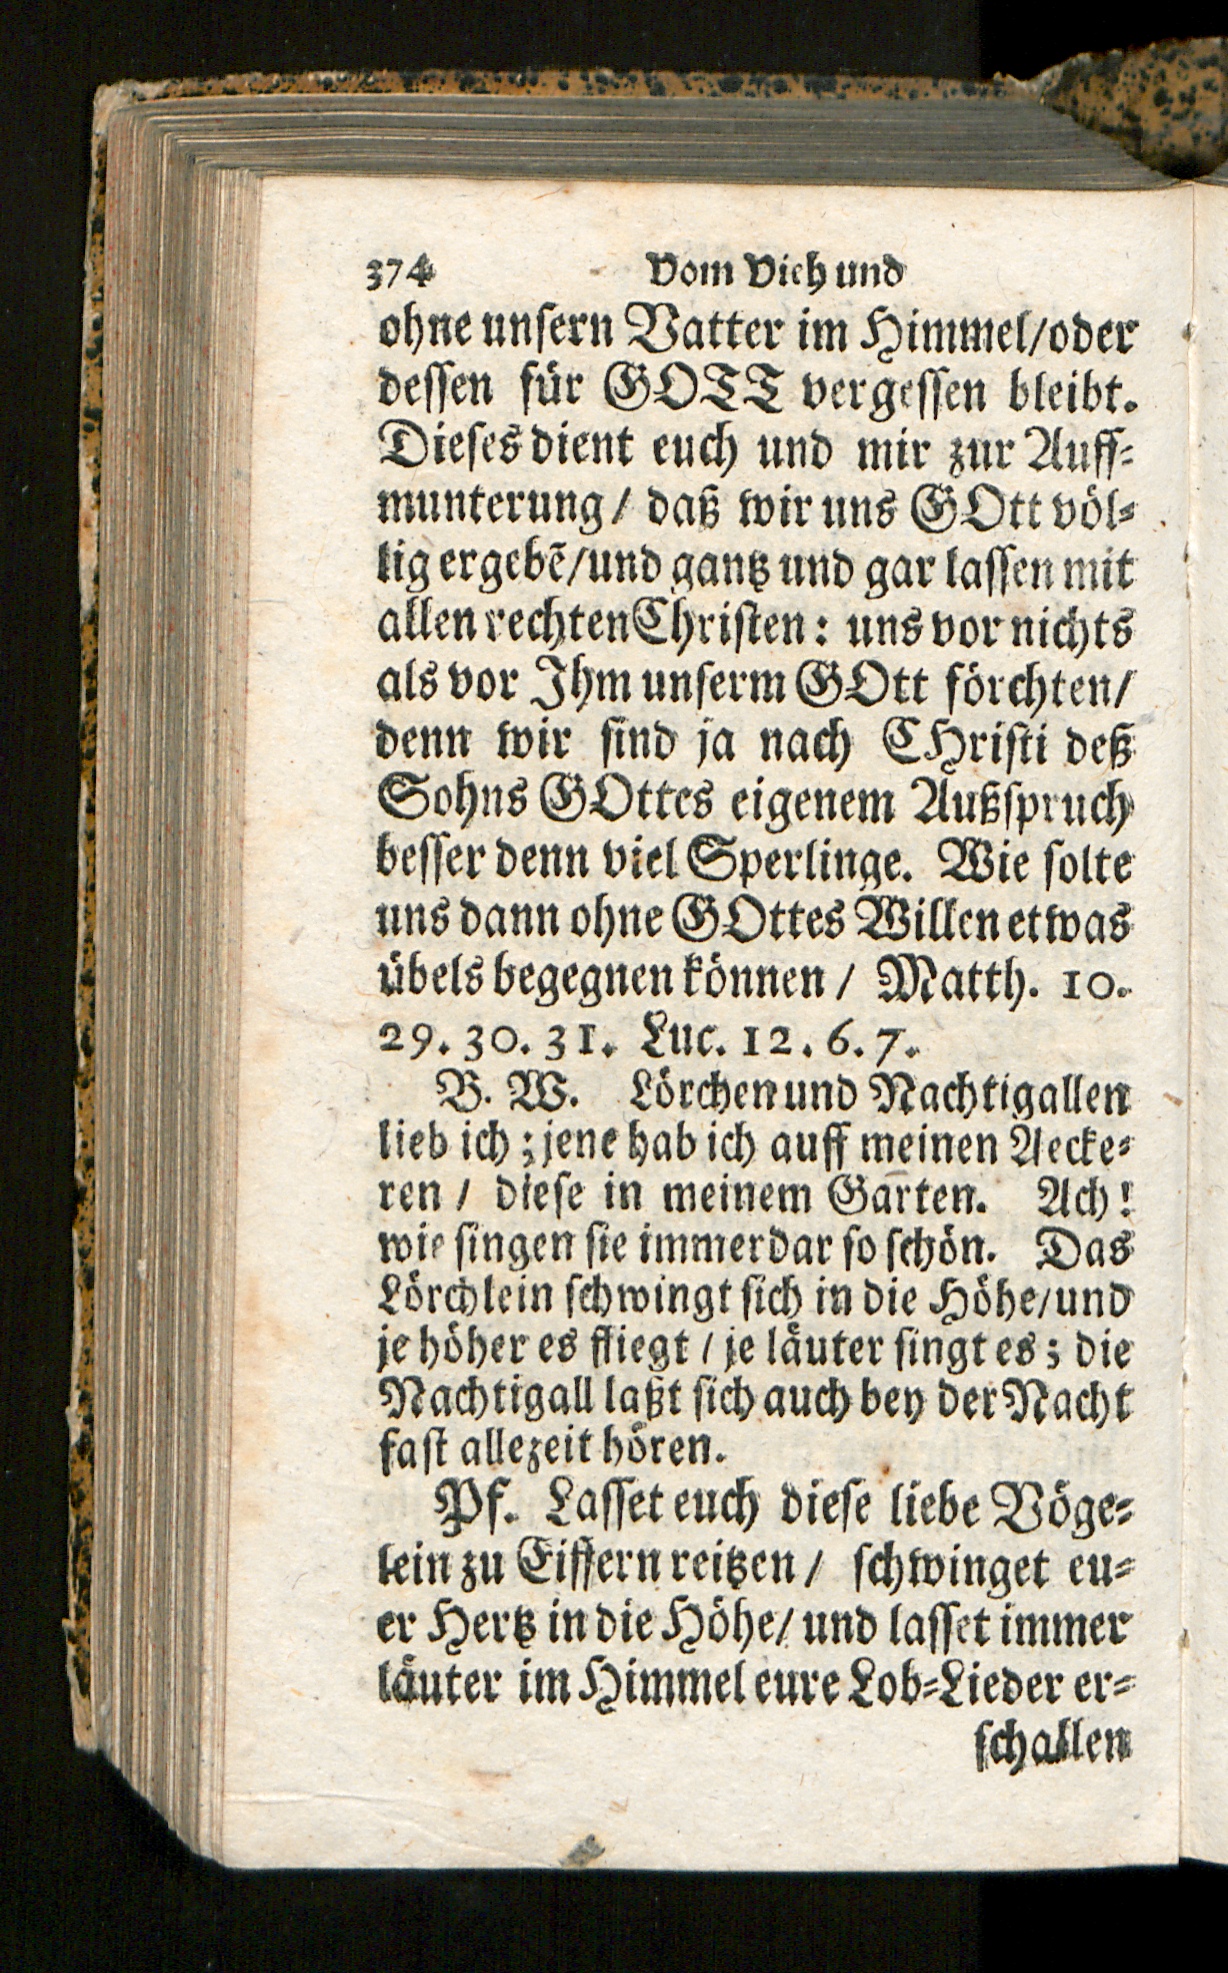 374 Vom Vieh und
ohne unſern Vatter im Himmel/oder
deſſen für GOTT vergeſſen bleibt.
Dieſes dient euch und mir zur Auff⸗
munterung / daß wir uns GOtt völ⸗
lig ergebē/und gantz und gar laſſen mit
allen rechten Chriſten: uns vor nichts
als vor Ihm unſerm GOtt förchten/
denn wir ſind ja nach CHriſti deß
Sohns GOttes eigenem Außſpruch
beſſer denn viel Sperlinge. Wie ſolte
uns dann ohne GOttes Willen etwas
übels begegnen können / Matth. 10.
29. 30. 31. Luc. 12. 6. 7.
B. W. Lörchen und Nachtigallen
lieb ich; jene hab ich auff meinen Aecke⸗
ren / dieſe in meinem Garten. Ach!
wie ſingen ſie immerdar ſo ſchön. Das
Lörchlein ſchwingt ſich in die Höhe/und
je höher es fliegt / je läuter ſingt es; die
Nachtigall laßt ſich auch bey der Nacht
faſt allezeit hören.
Pf. Laſſet euch dieſe liebe Vöge⸗
lein zu Eiffern reitzen / ſchwinget eu⸗
er Hertz in die Höhe/ und laſſet immer
läuter im Himmel eure Lob⸗Lieder er⸗
ſchallen